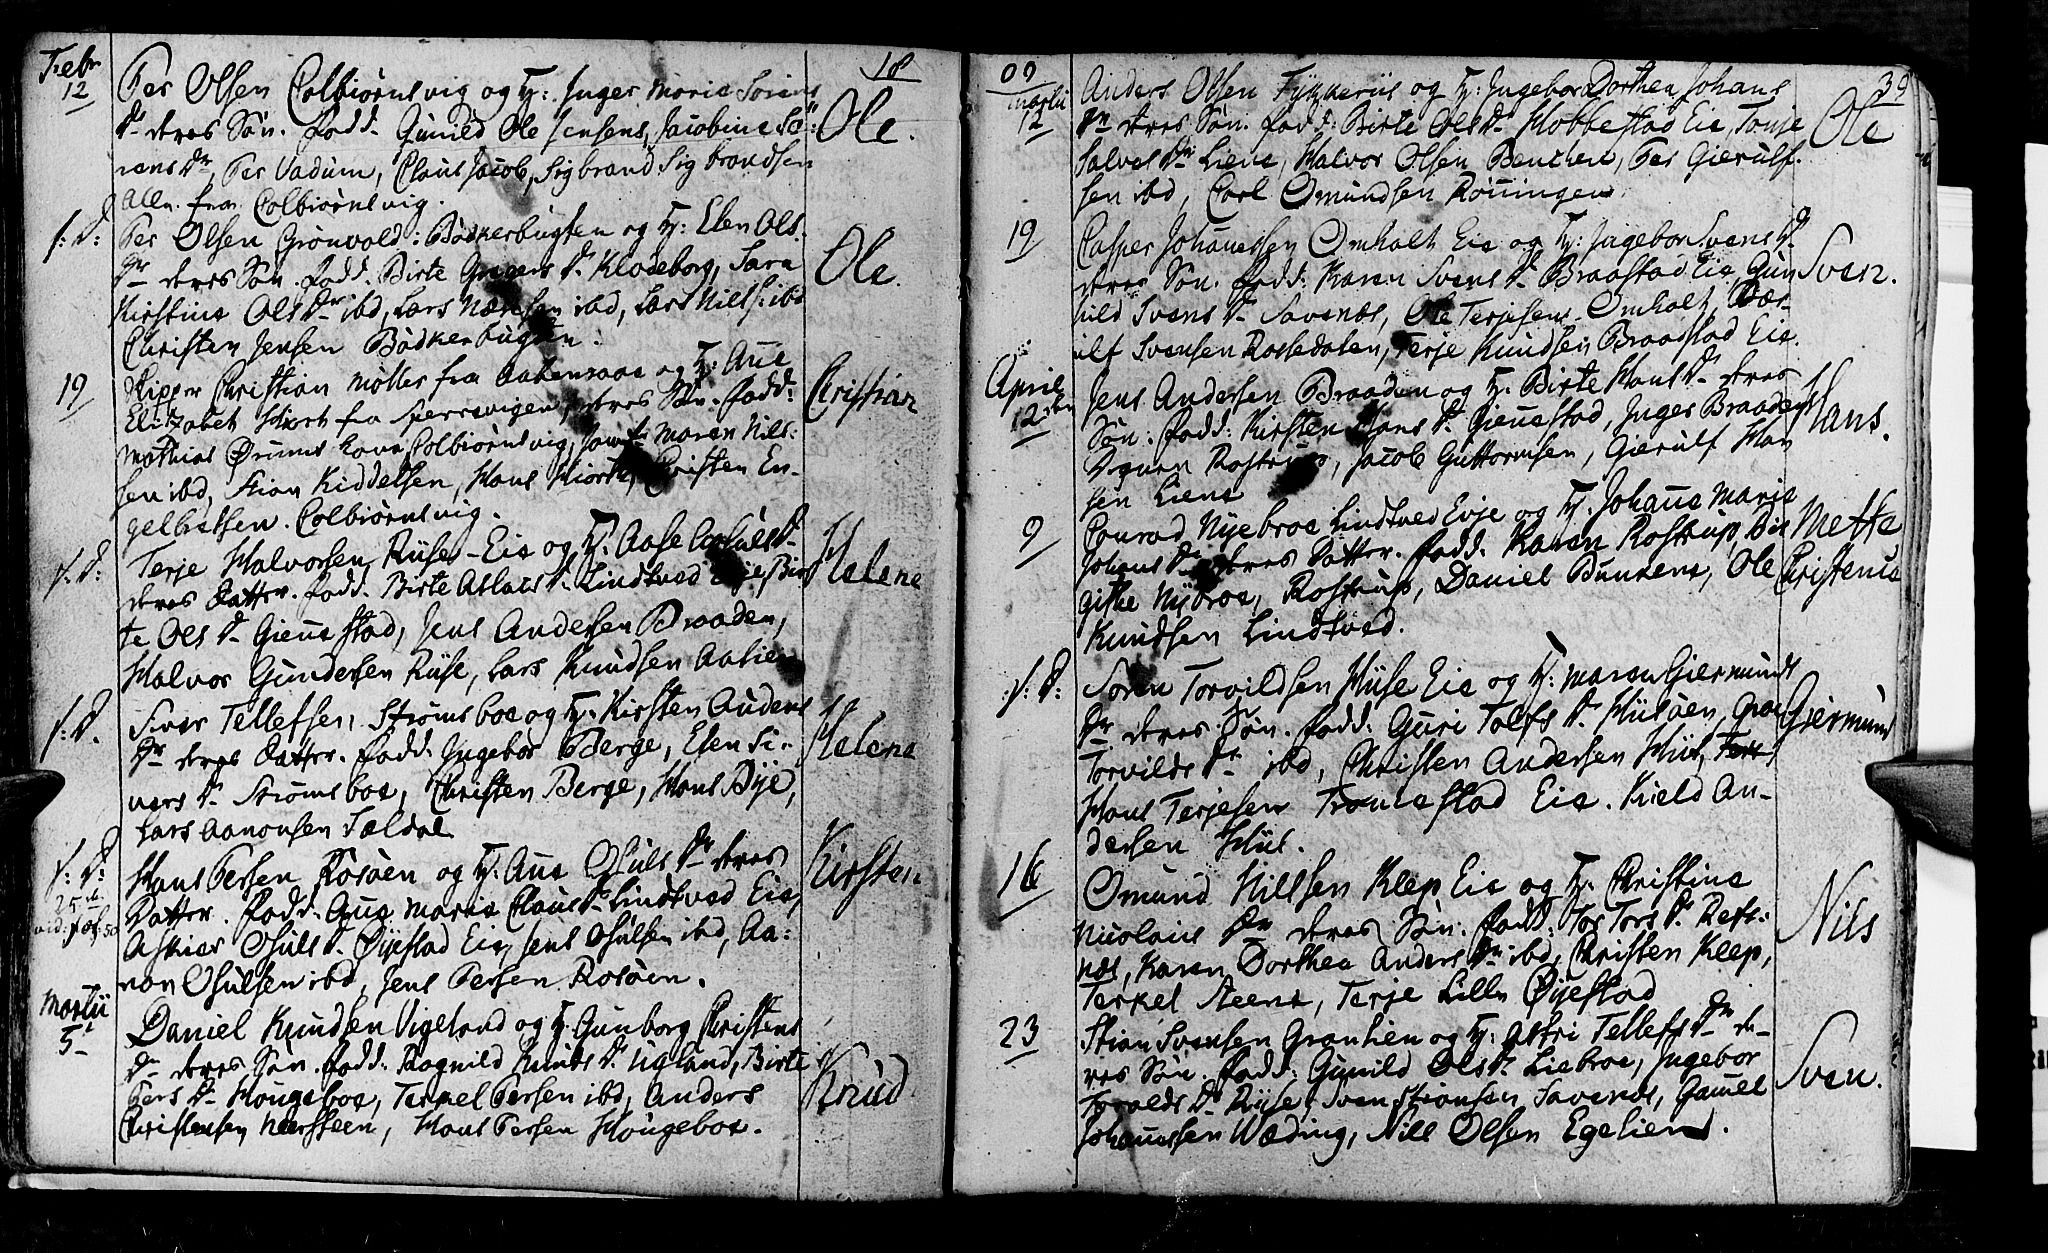 18
Febr
12
Per Olsen Colbiørnsvig og H: Inger Marie Sørens
Dr deres Søn. fadd. Gunild Ole Jensens, Jacobine Sø-
rens Dr, Per Vadum, Claus Jacob, Sigbrand Sigbrandsen
alle fra Colbiørnsvig.
Ole.
s: d:
Per Olsen Grønvold: Bødkerbugten og H: Elen Ols
Dr deres Søn. fadd. Birte Gregers Dr Klodeborg, Sara
Kirstine Ols Dr ibd, Lars ibd, Lars Nills: ibd
Christen Jensen Bødkerbugten.
Ole.
19
Skipper Christian Møller fra Aabenraae og H: Ane
Elizabet Hiort fra deres Søn. fadd:
Mathias Colbiørnsvig, Maren Nils-
sen ibd, Stian Kiddelsen, Hans Hiorte, Christen En-
gelbretsen. Colbiørnsvig.
Christian
s: d:
Terje Halvorsen Rüse-Eie og H: Aase Aslaks Dr
deres Datter. fadd. Birte Aslaks Dr Lindtved Eje, Bir
te Ols Dr Gieuestad, Jens Andersen Braaden,
Halvor Gundersen Rüse, Lars Knudsen Aalien
Helene
s: d.
Siver Tellefsen Strømsboe og H: Kirsten Anders
Dr deres Datter. fadd: Ingebor Berge, Elen Si-
vers Dr Strømsboe, Christen Berge, Hans Bye,
Lars Aanonsen Sældal
Helene
s: d:
25de
vid: fol: 50
Hans Persen Rosøen og H: Ane Osuls Dr deres
Datter. fadd: Ane Marie Claus Dr Lindtved Eie,
Osuls Dr Øyestad Eie, Jens Osulsen ibd, Aa-
non Osulsen ibd, Jens Persen Rosøen.
Kirsten
Martii
5t
Daniel Knudsen Vigeland og H: Gunborg Christens
Dr deres Søn. fadd: Ragnild Knuds Dr Ugland, Birte
Pers Dr Hougeboe, Terkel Persen ibd, Anders
Christensen Neersteen, Hans Persen Hougeboe.
Knud
09
39
Martii
12
Anders Olsen og H: Ingebor Dorthea Johans
Dr deres Søn. fadd: Birte Ols Dr Hobbestad Eie, Tonje
Salves Dr Liene, Halvor Olsen Benthen, Per Gierulf-
sen ibd, Carl Omundsen Rønningen.
Ole
19
Casper Johannessen Omholt Eie og H: Ingebor Svens Dr
deres Søn. fadd: Karen Svens Dr Braastad Eie, Gun
hild Svens Dr Savenes, Ole Terjesens Omholt, Bær-
ulf Svensen Rossedalen, Terje Knudsen Braastad Eie.
Sven.
April
12den
Jens Andersen Braaden og H. Birte Hans Dr deres
Søn: fadd: Kirsten Hans Dr Gieuestad, Inger Braaden,
Rostrup, Jacob Guttormsen, Gierulf Han
sen Liene
Hans.
9
Conrad Nyebroe Lindtved Evje og H. Johane Marie
Johans Dr deres Datter. fadd: Karen Rostrup, Bir
gitte Nybroe, Rostrup, Daniel Buntzens, Ole
Knudsen Lindtved.
Mette
Christence
s: d:
Søren Torvildsen Hüse Eie og H: Maren Giermunds
Dr deres Søn. fadd: Guri Tolfs Dr Hüsøen, Groe
Torvilds Dr ibd, Christen Andersen Hüs,
Hans Terjesen Tromestad Eie. Kield An-
dersen Hüs.
Giermund
16
Omund Nillsen Klep Eie og H. Christine
Nicolaus Dr deres Søn. fadd: Tor Tors Dr Refs-
nes, Karen Dorthea Anders Dr ibd, Christen Klep,
Terkel Steene, Terje Lille Øyestad
Nils
23
Stian Svensen Granlien og H: Astri Tellefs Dr de-
res Søn. fadd: Gunild Ols Dr Liebroe, Ingebor
Torolds Dr Ryse, Sven Stiansen Savenes, Gamel
Johannessen Wæding, Nill Olsen Egelien.
Sven.